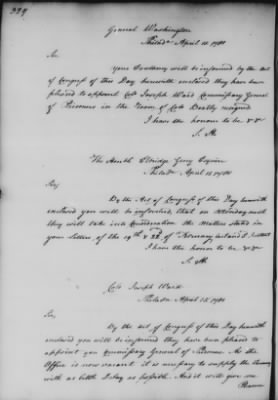 General Washington
Philada April 15. 1780
Sir,
Your Excellency will be informed by the Act
of Congress of this Day herewith enclosed they have been
pleased to appoint Colo Joseph Ward Commissary General
of Prisoners in the Room of Colo Beatty resigned
I have the honour to be &c
S. H.
The Honble Elbridge Gerry Esquire
Philada April 15. 1780
Sir,
By the Act of Congress of this Day herewith
enclosed you will be informed, that on Monday next
they will take into Consideration the Matters stated in
your Letters of the 19th & 22d of February
I have the honour to be &c
S. H.
Colo Joseph Ward
Philada April 15. 1780
Sir,
By the act of Congress of this Day herewith
enclosed you will be informed they have been pleased to
appoint you Commissary General of Prisoners. As the
Office is now vacant it is necessary to supply the
with as little Delay as possible. And it will give me